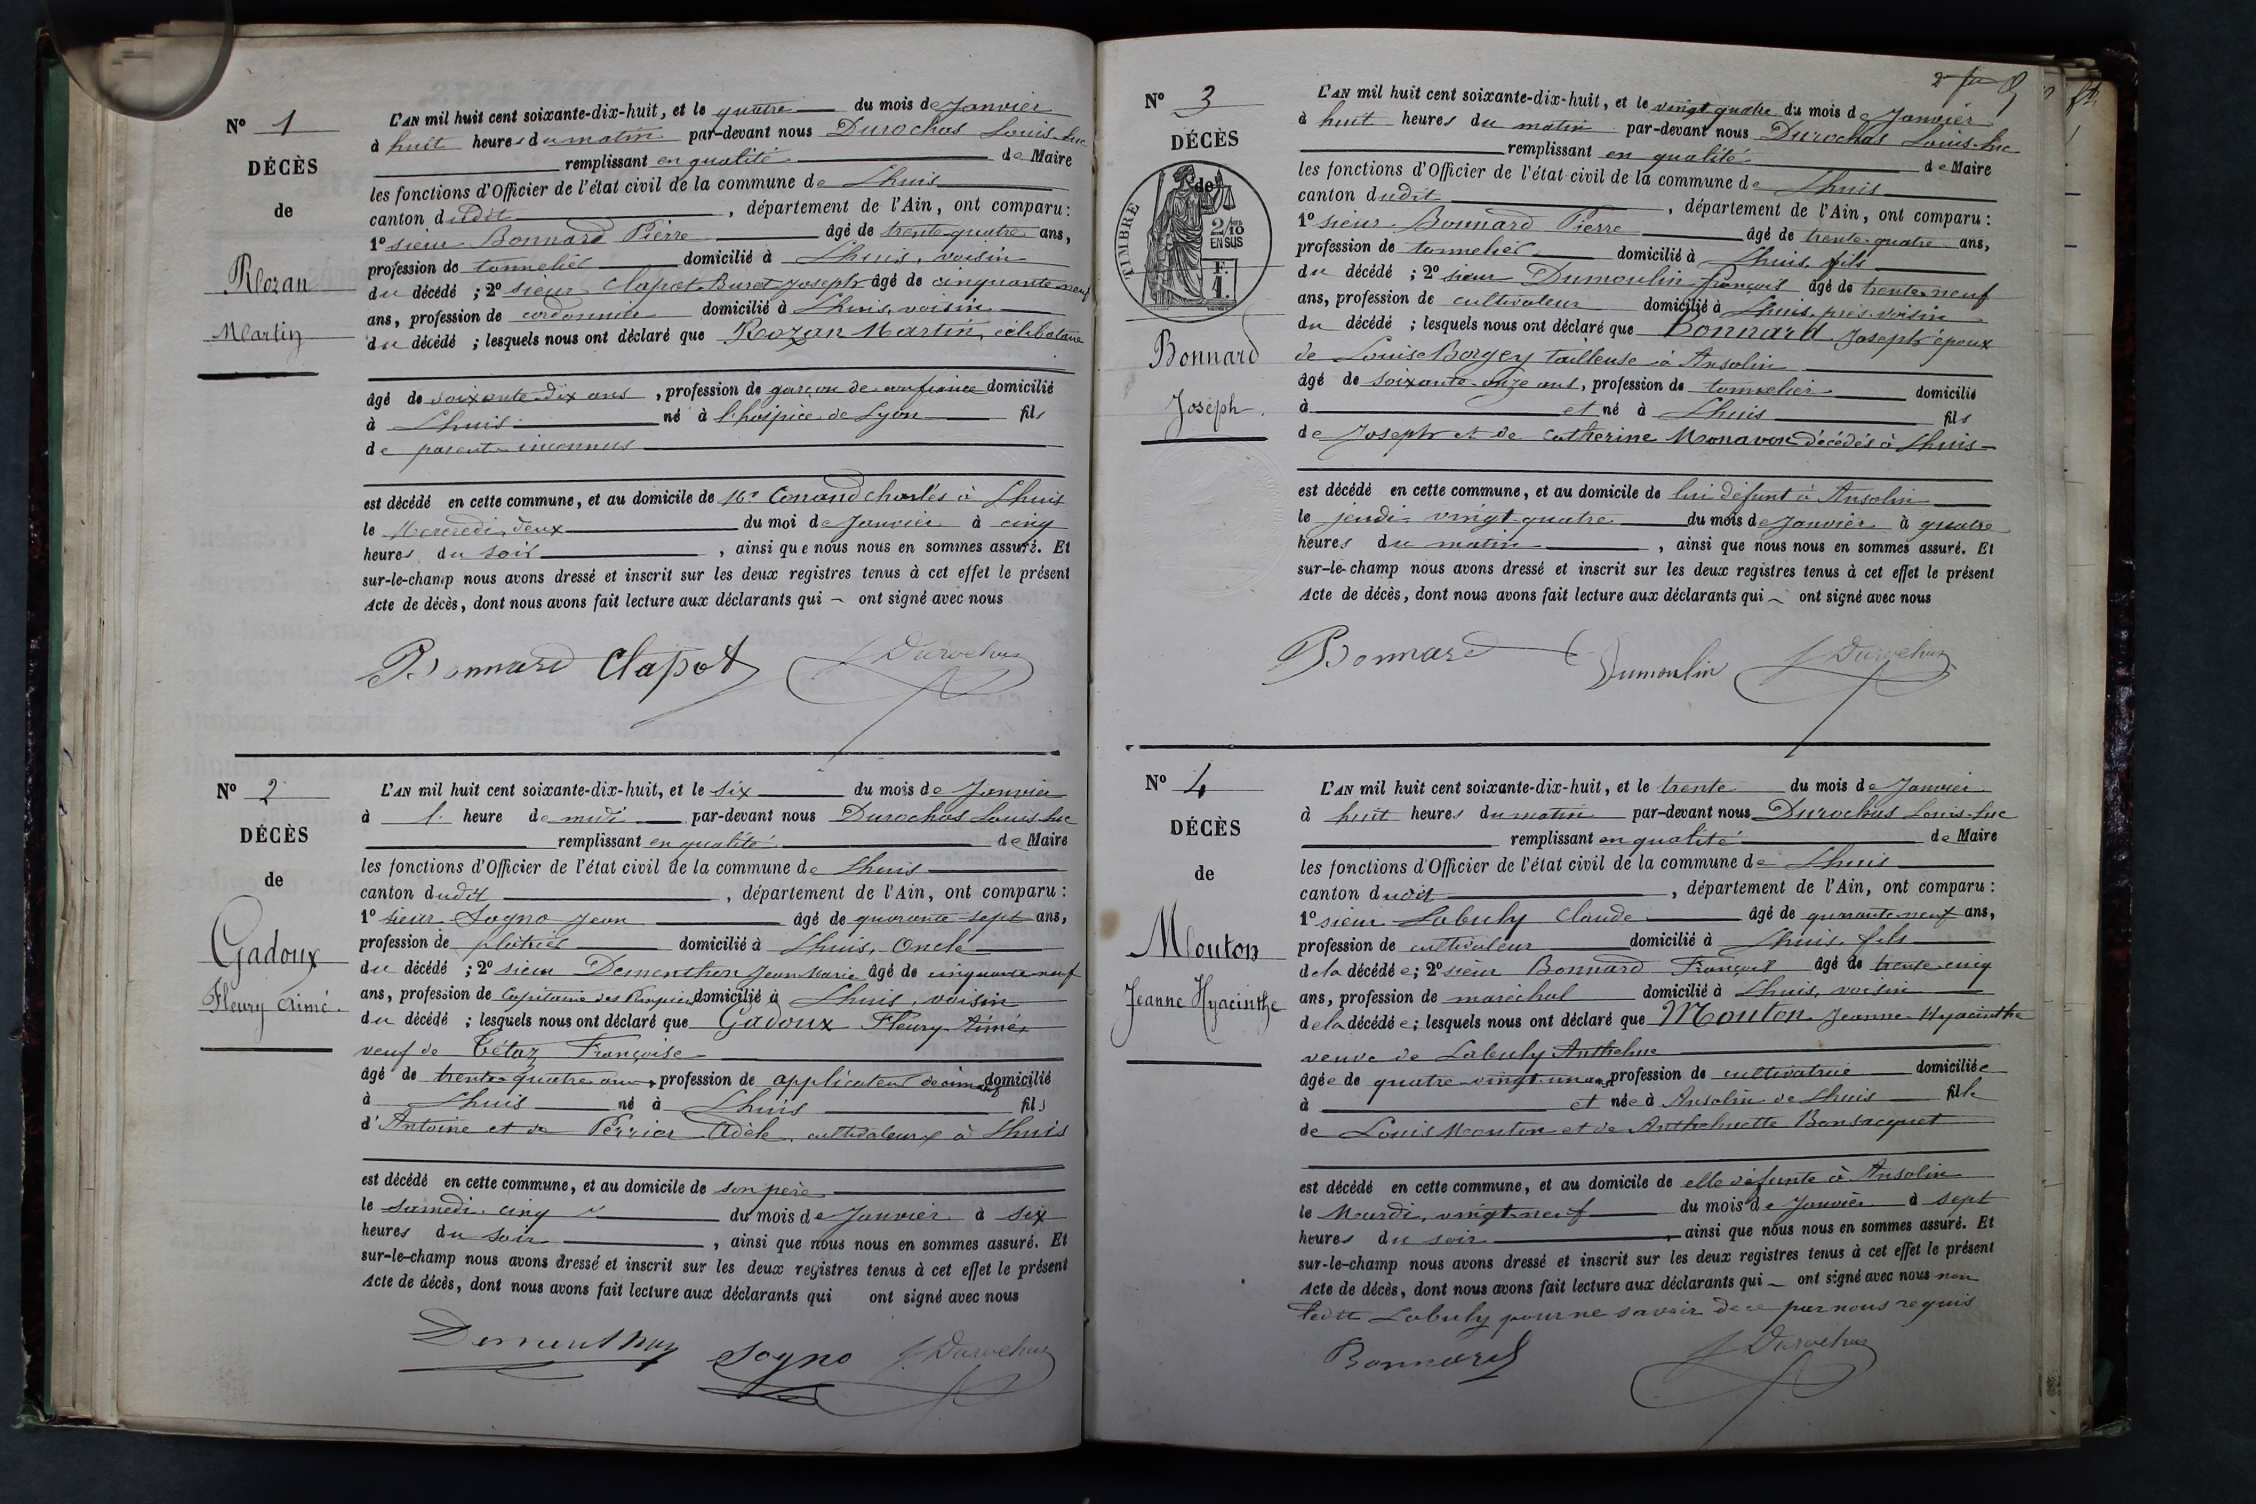 N° 1
DÉCÈS
de
Rozan
Martin
L'AN mil huit cent soixante-dix-huit, et le quatre du mois de Janvier
à huit heures du matin par-devant nous Durochas Louis Luc
remplissant en qualité de Maire
les fonctions d'Officier de l'état civil de la commune de Lhuis
canton dudit, département de l'Ain, ont comparu :
1° sieur Bonnard Pierre âgé de trente quatre ans,
profession de tonnelier domicilié à Lhuis, voisin
du décédé ; 2° sieur Clapot Buret Joseph âgé de cinquante neuf
ans, profession de cordonnier domicilié à Lhuis, voisin
du décédé ; lesquels nous ont déclaré que Rozan Martin, célibataire
âgé de soixante dix ans, profession de garçon de confiance domicilié
à Lhuis né à l'hospice de Lyon fils
de parents inconnus
est décédé en cette commune, et au domicile de Mr Conand Charles à Lhuis
le Mercredi, deux du moi de Janvier à cinq
heures du soir, ainsi que nous nous en sommes assuré. Et
sur-le-champ nous avons dressé et inscrit sur les deux registres tenus à cet effet le présent
Acte de décès, dont nous avons fait lecture aux déclarants qui ont signé avec nous
Bonnard Clapot L Durochas
N° 2
DÉCÈS
de
Gadoux
Fleury Aimé.
L'AN mil huit cent soixante-dix-huit, et le six du mois de Janvier
à 1. heure de midi par-devant nous Durochas Louis Luc
remplissant en qualité de Maire
les fonctions d'Officier de l'état civil de la commune de Lhuis
canton dudit, département de l'Ain, ont comparu :
1° sieur Sogno Jean âgé de quarante-sept ans,
profession de plâtrier domicilié à Lhuis, Oncle
du décédé ; 2° sieur Dementhon Jean Marie âgé de cinquante neuf
ans, profession de Capitaine des Pompiers domicilié à Lhuis, voisin
du décédé ; lesquels nous ont déclaré que Gadoux Fleury Aimé,
veuf de Tétaz Françoise
âgé de trente quatre ans, profession de applicateur de ciment domicilié
à Lhuis né à Lhuis fils
d'Antoine et de Perrier Adèle, cultivateurs à Lhuis
est décédé en cette commune, et au domicile de son père
le samedi, cinq du mois de Janvier à six
heures du soir, ainsi que nous nous en sommes assuré. Et
sur-le-champ nous avons dressé et inscrit sur les deux registres tenus à cet effet le présent
Acte de décès, dont nous avons fait lecture aux déclarants qui ont signé avec nous
Dementhon Sogno L Durochas
N° 3
DÉCÈS
de
TIMBRE
2/10
EN SUS
F.
1.
Bonnard
Joseph.
L'AN mil huit cent soixante-dix-huit, et le vingt quatre du mois de Janvier
à huit heures du matin par-devant nous Durochas Louis-Luc
remplissant en qualité de Maire
les fonctions d'Officier de l'état civil de la commune de Lhuis
canton dudit, département de l'Ain, ont comparu :
1° sieur Bonnard Pierre âgé de trente quatre ans,
profession de tonnelier domicilié à Lhuis, fils
du décédé ; 2° sieur Dumoulin François âgé de trente neuf
ans, profession de cultivateur domicilié à Lhuis, près voisin
du décédé ; lesquels nous ont déclaré que Bonnard Joseph époux
de Louise Borgey tailleuse à Ansolin
âgé de soixante-onze ans, profession de tonnelier domicilié
à et né à Lhuis fils
de Joseph et de Catherine Monavon décédés à Lhuis
est décédé en cette commune, et au domicile de lui défunt à Ansolin
le jeudi vingt-quatre du mois de Janvier à quatre
heures du matin, ainsi que nous nous en sommes assuré. Et
sur-le-champ nous avons dressé et inscrit sur les deux registres tenus à cet effet le présent
Acte de décès, dont nous avons fait lecture aux déclarants qui ont signé avec nous
Bonnard Dumoulin L Durochas
N° 4
DÉCÈS
de
Mouton
Jeanne Hyacinthe
L'AN mil huit cent soixante-dix-huit, et le trente du mois de Janvier
à huit heures du matin par-devant nous Durochas Louis-Luc
remplissant en qualité de Maire
les fonctions d'Officier de l'état civil de la commune de Lhuis
canton dudit, département de l'Ain, ont comparu :
1° sieur Labuly Claude âgé de quarante neuf ans,
profession de cultivateur domicilié à Lhuis, fils
de la décédée ; 2° sieur Bonnard François âgé de trente-cinq
ans, profession de maréchal domicilié à Lhuis, voisin
de la décédée ; lesquels nous ont déclaré que Mouton Jeanne Hyacinthe
veuve de Labuly Anthelme
âgée de quatre vingt-un ans profession de cultivatrice domiciliée
à et née à Ansolin de Lhuis fille
de Louis Mouton et de Anthelmette Bonsacquet
est décédé en cette commune, et au domicile de elle défunte à Ansolin
le Mardi, vingt-neuf du mois de Janvier à sept
heures du soir, ainsi que nous nous en sommes assuré. Et
sur-le-champ nous avons dressé et inscrit sur les deux registres tenus à cet effet le présent
Acte de décès, dont nous avons fait lecture aux déclarants qui ont signé avec nous non
ledit Labuly pour ne savoir de ce par nous requis
Bonnard L Durochas